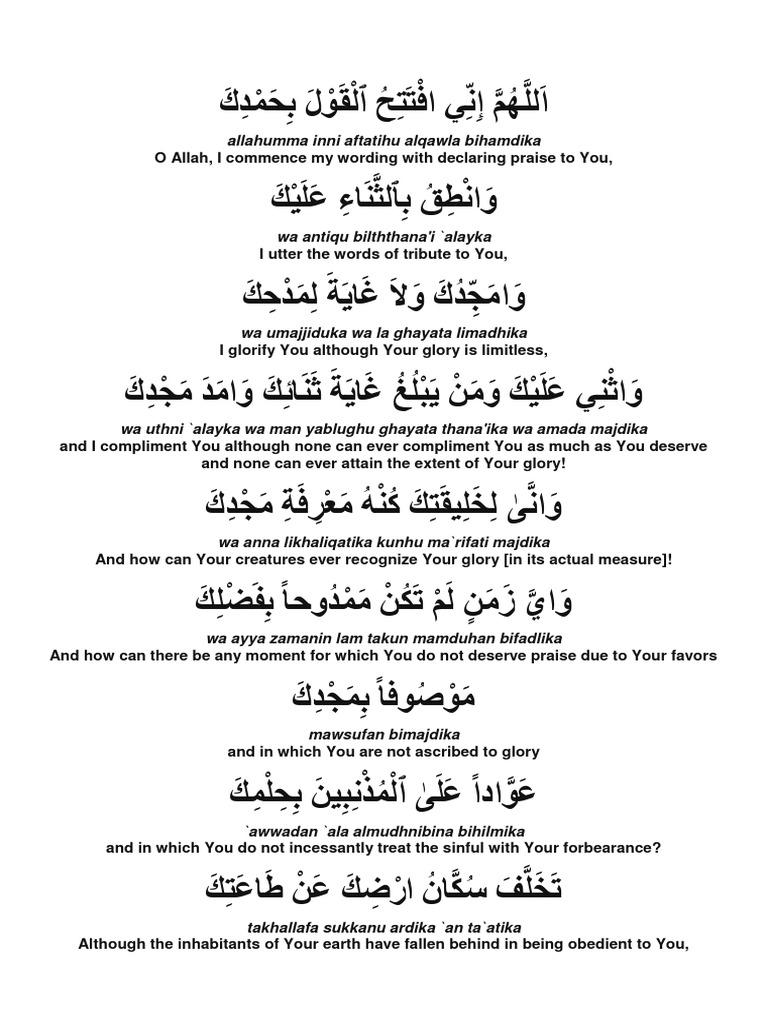 اَللَّهُمَّ إِنِّي افْتَتِحُ ٱلْقَوْلَ بِحَمْدِكَ
allahumma inni aftatihu alqawla bihamdika
O Allah, I commence my wording with declaring praise to You,
وَانْطِقُ بِٱلثَّنَاءِ عَلَيْكَ
wa antiqu bilththana'i `alayka
I utter the words of tribute to You,
وَامَجِّدُكَ وَلاَ غَايَةَ لِمَدْحِكَ
wa umajjiduka wa la ghayata limadhika
I glorify You although Your glory is limitless,
وَاثْنِي عَلَيْكَ وَمَنْ يَبْلُغُ غَايَةَ ثَنَائِكَ وَامَدَ مَجْدِكَ
wa uthni `alayka wa man yablughu ghayata thana'ika wa amada majdika
and I compliment You although none can ever compliment You as much as You deserve
and none can ever attain the extent of Your glory!
وَانَّىٰ لِخَلِيقَتِكَ كُنْهُ مَعْرِفَةِ مَجْدِكَ
wa anna likhaliqatika kunhu ma`rifati majdika
And how can Your creatures ever recognize Your glory [in its actual measure]!
وَايَّ زَمَنٍ لَمْ تَكُنْ مَمْدُوحاً بِفَضْلِكَ
wa ayya zamanin lam takun mamduhan bifadlika
And how can there be any moment for which You do not deserve praise due to Your favors
مَوْصُوفاً بِمَجْدِكَ
mawsufan bimajdika
and in which You are not ascribed to glory
عَوَّاداً عَلَىٰ ٱلْمُذْنِبِينَ بِحِلْمِكَ
`awwadan `ala almudhnibina bihilmika
and in which You do not incessantly treat the sinful with Your forbearance?
تَخَلَّفَ سُكَّانُ ارْضِكَ عَنْ طَاعَتِكَ
takhallafa sukkanu ardika `an ta`atika
Although the inhabitants of Your earth have fallen behind in being obedient to You,